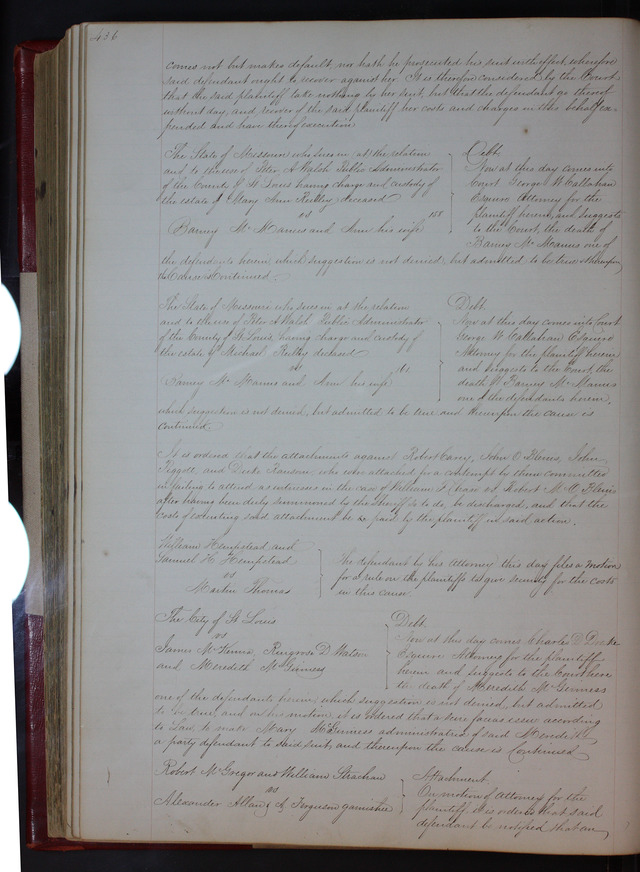 436
comes not but makes default, nor hath he prosecuted his suit with effect, wherefore
said defendant ought to recover against her. It is therefore considered by the Court
that the said plaintiff take nothing by her suit, but that the defendant go thereof
without day, and recover of the said plaintiff her costs and charges in this behalf ex-
pended and have thereof execution.
The State of Missouri who sues in at the relation
and to the use of Peter A Walsh Public Administrator
of the County of St Louis having charge and custody of
the estate of Mary Ann deceased
vs 158
Barney McManus and Ann his wife
Debt.
Now at this day comes into
Court George W Callahan
Esquire Attorney for the
plaintiff herein, and suggests
to the Court, the death of
Barney McManus one of
the defendants herein, which suggestion is not denied, but admitted to be true & thereupon
the Cause is Continued.
The State of Missouri who sues in at the relation
and to the use of Peter A Walsh Public Administrator
of the County of St Louis, having charge and custody of
the estate of Michael deceased
vs 161
Barney McManus and Ann his wife
Debt.
Now at this day comes into Court
George W Callahan Esquire
Attorney for the plaintiff herein
and suggests to the Court, the
death of Barney McManus
one of the defendants herein,
which suggestion is not denied, but admitted to be true and thereupon the cause is
Continued.
It is ordered that the attachments against Robert, John O, John
Piggott, and Duke Ransom, who were attached for a contempt by them committed
in failing to attend, as witnesses in the case of William I Chase vs Robert M O Blair
after having been duly summoned by the Sheriff so to do, be discharged, and that the
costs of executing said attachment be paid by the plaintiff in said action.
William Hempstead and
Samuel H Hempstead
vs
Martin Thomas
The defendant by his Attorney this day files a motion
for a rule on the plaintiffs to give security for the costs
in this cause.
The City of St Louis
vs
James McKenna, Ringrose D. Watson
and Meredith McGinness
Debt.
Now at this day comes Charles D Drake
Esquire Attorney for the plaintiff
herein and suggests to the Court here
the death of Meredith McGinness
one of the defendants herein, which suggestion is not denied, but admitted
to be true, and on his motion it is ordered that a scire facias issue according
to Law, to make Mary McGinness administratrix of said Meredith
a party defendant to said suit, and thereupon the cause is Continued
Robert McGregor and William Strachan
vs
Alexander Allan & A. Ferguson garnishee
Attachment
On motion of Attorney for the
plaintiff, it is ordered that said
defendant be notified that an